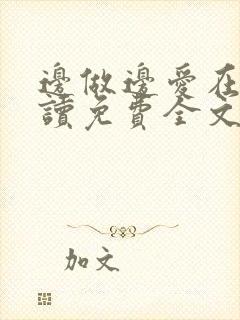 邊做邊愛在
讀免費全文
加文